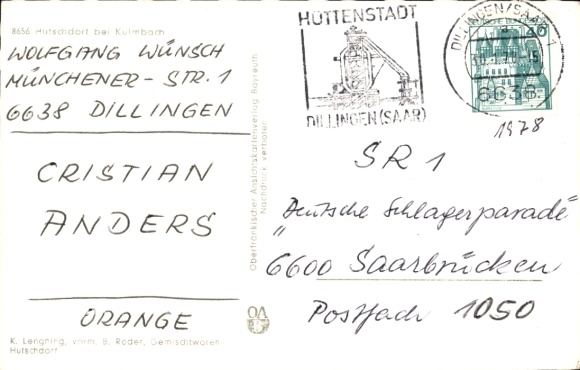 8656 Hutschdorf bei Kulmbach
WOLFGANG WÜNSCH
MÜNCHENER-STR. 1
6638 DILLINGEN
CRISTIAN
ANDERS
ORANGE
K. Lengning, vorm. B. Roder, Gemischtwaren
Hutschdorf
Oberfränkischer Ansichtskartenverlag Bayreuth
Nachdruck verboten
OA
HÜTTENSTADT
DILLINGEN (SAAR)
DILLINGEN/SAAR 1
6638
40
1978
SR 1
„Deutsche Schlagerparade"
6600 Saarbrücken
Postfach 1050